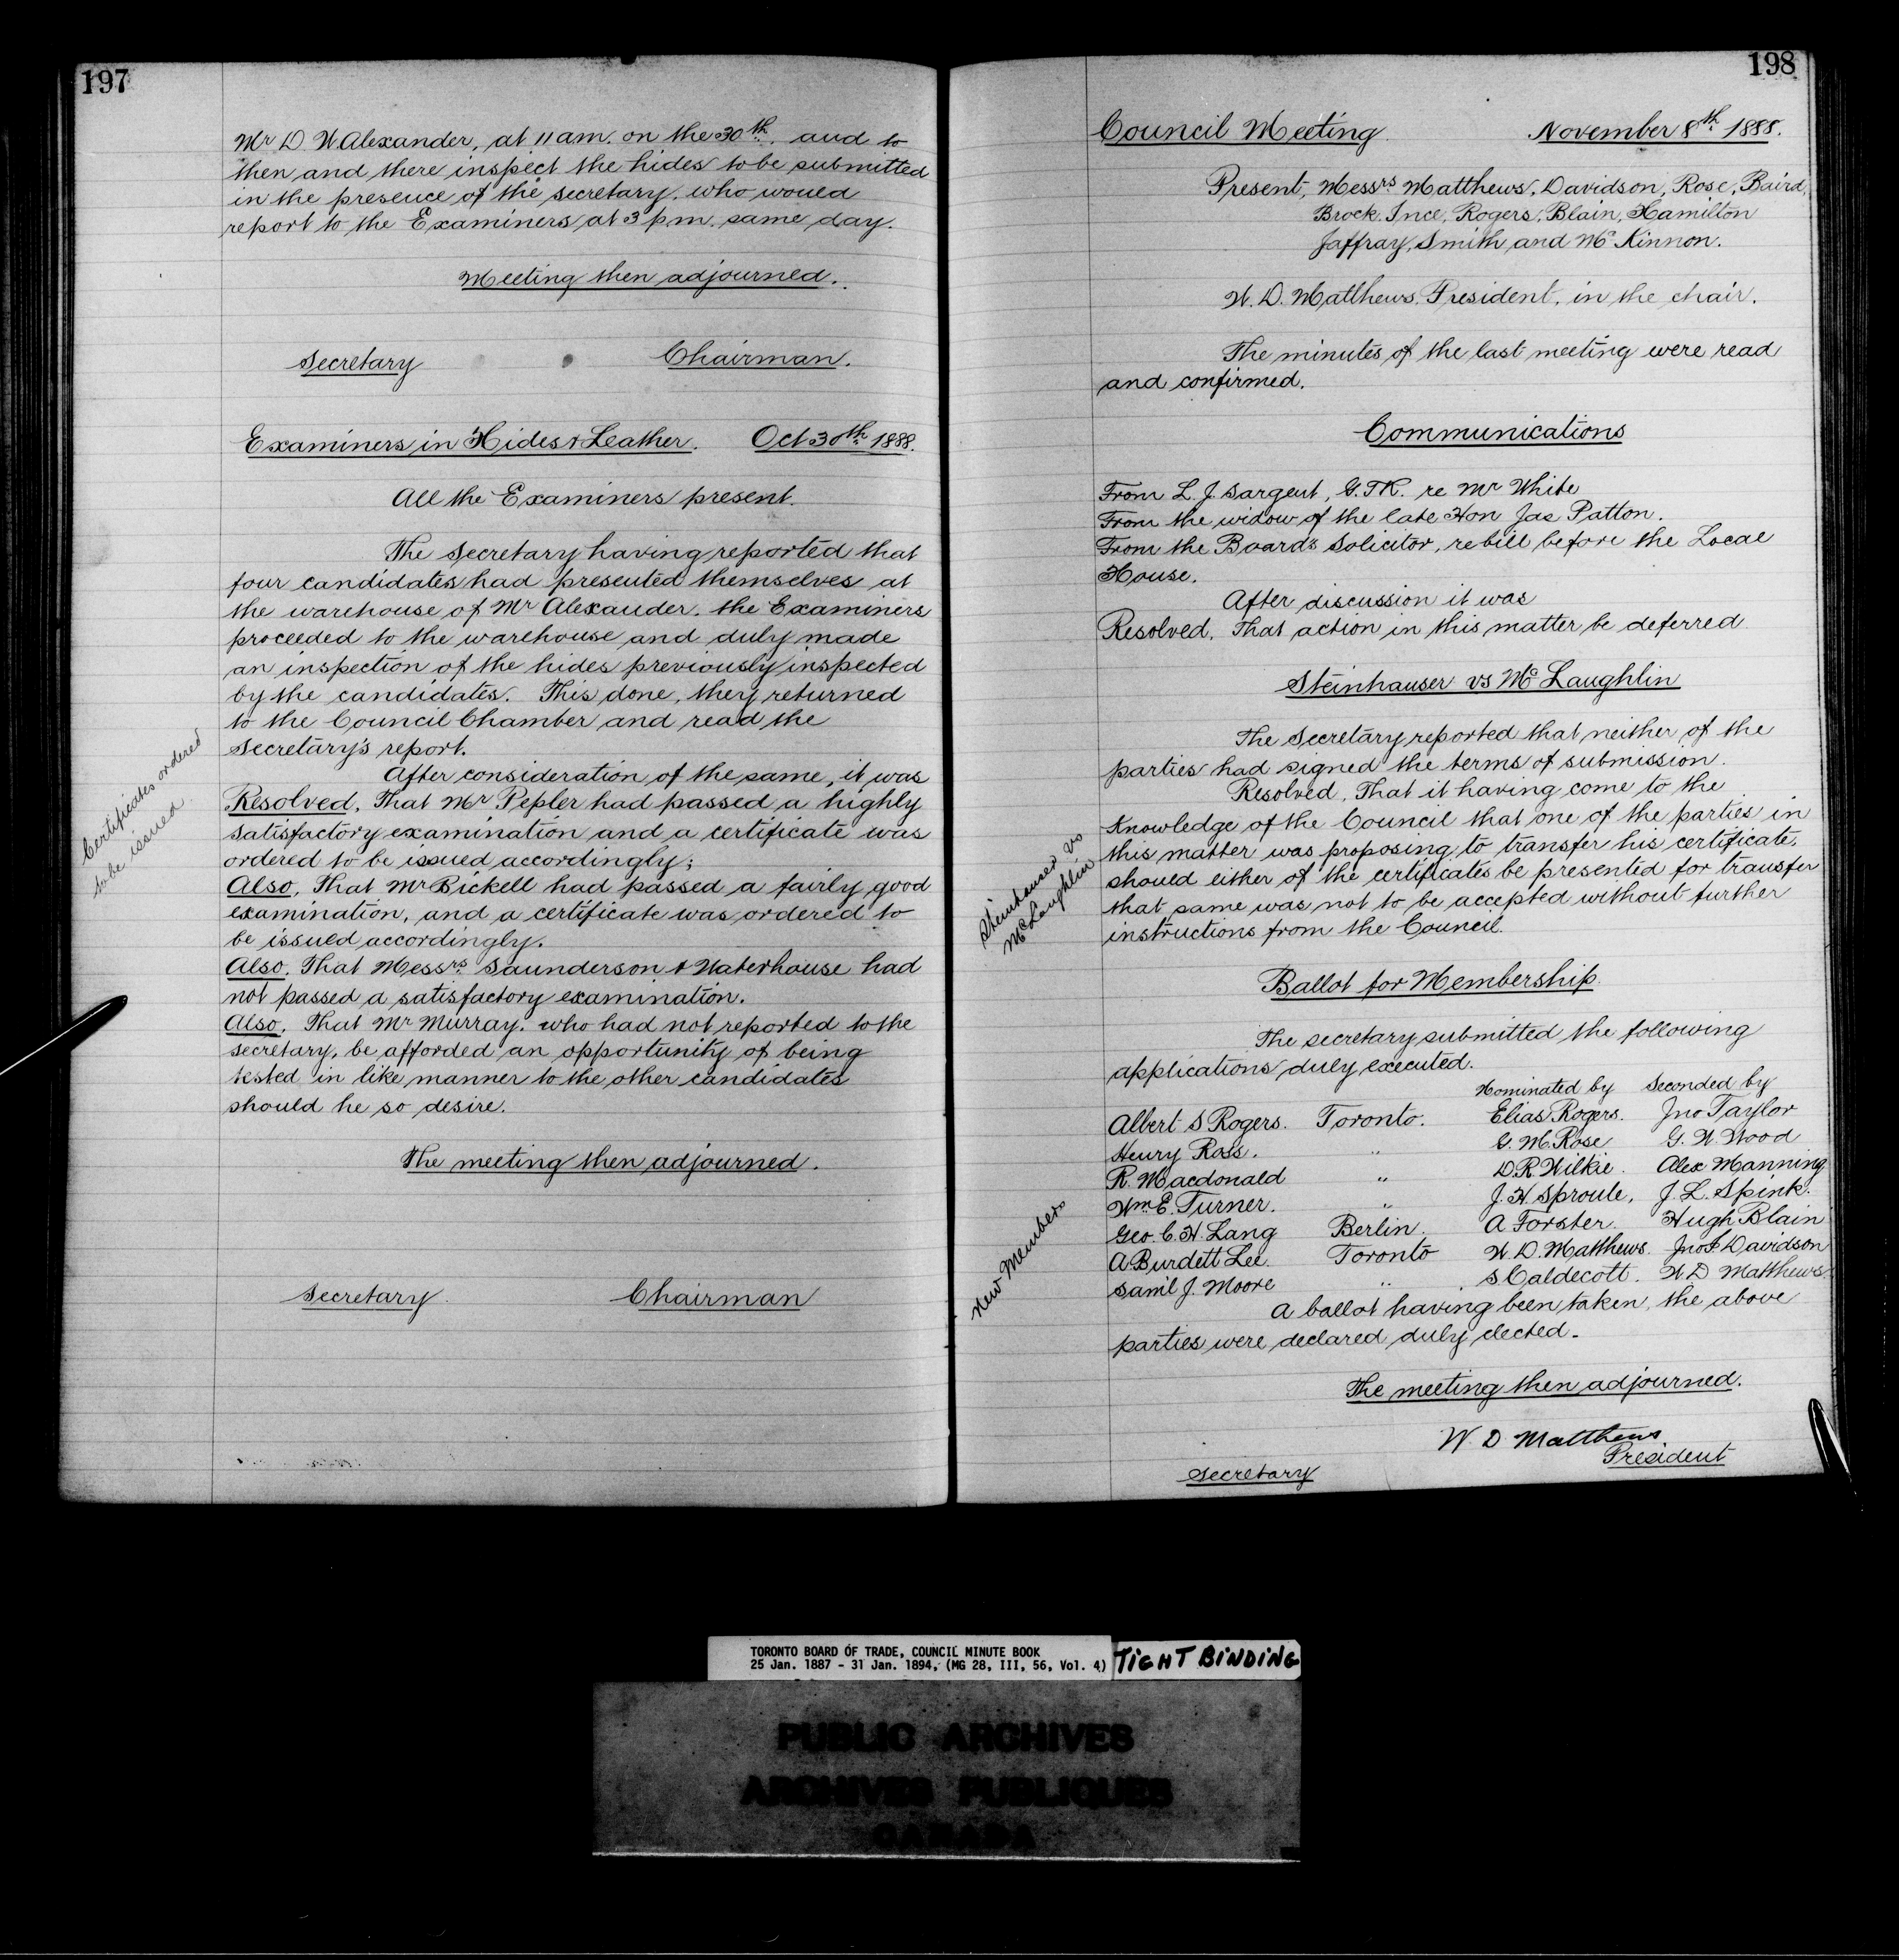 197
Mr D. W. Alexander, at 11 am. on the 30th. and to
then and there inspect the hides to be submitted
in the presence of the secretary. who would
report to the Examiners at 3 p.m. same day.
Meeting then adjourned.
Secretary Chairman.
Examiners in Hides & Leather. Oct 30th 1888.
All the Examiners present.
The Secretary having reported that
four candidates had presented themselves at
the warehouse of Mr Alexander. the Examiners
proceeded to the warehouse and duly made
an inspection of the hides previously inspected
by the candidates. This done, they returned
to the Council Chamber and read the
Secretary's report.
After consideration of the same, it was
Resolved, That Mr Pepler had passed a highly
satisfactory examination and a certificate was
ordered to be issued accordingly;
Also, That Mr Bickell had passed a fairly good
examination, and a certificate was ordered to
be issued accordingly.
Also. That Messrs. Saunderson & Waterhouse had
not passed a satisfactory examination.
Also. That Mr Murray. who had not reported to the
secretary, be afforded an opportunity of being
tested in like manner to the other candidates
should he so desire.
Certificates ordered
to be issued
The meeting then adjourned.
Secretary. Chairman
198
Council Meeting. November 8th 1888.
Present, Messrs Matthews, Davidson, Rose, Baird,
Brock. Ince, Rogers, Blain, Hamilton
Jaffray, Smith and Mc Kinnon.
W. D. Matthews. President. in the chair.
The minutes of the last meeting were read
and confirmed.
Communications
From L. J. Sargent, G.T.R. re Mr White
From the widow of the late Hon Jas Patton.
From the Board's Solicitor, re bill before the Local
House.
After discussion it was
Resolved. That action in this matter be deferred
Steinhauser vs Mc Laughlin
The Secretary reported that neither of the
parties had signed the terms of submission.
Resolved, That it having come to the
Knowledge of the Council that one of the parties in
this matter was proposing to transfer his certificate,
should either of the certificates be presented for transfer
that same was not to be accepted without further
instructions from the Council.
Steinhauser vs
McLaughlin
Ballot for Membership.
The secretary submitted the following
applications duly executed.
Nominated by Seconded by
Albert S Rogers. Toronto. Elias Rogers. Jno Taylor
Henry Ross. " G. M. Rose G. W. Wood
R. Macdonald " D. R. Wilkie. Alex Manning
Wm E. Turner. " J. H. Sproule, J. L. Spink.
Geo. C. H. Lang Berlin. A Forster. Hugh Blain
A Burdett Lee. Toronto W. D. Matthews. Jno I Davidson
Saml J. Moore " S Caldecott. W D Matthews
New Members
A ballot having been taken, the above
parties were declared duly elected.
The meeting then adjourned.
W. D Matthews
President
Secretary
TORONTO BOARD OF TRADE, COUNCIL MINUTE BOOK
25 Jan. 1887 - 31 Jan. 1894, (MG 28, III, 56, Vol. 4)
TIGHT BINDING
PUBLIC ARCHIVES
ARCHIVES PUBLIQUES
CANADA